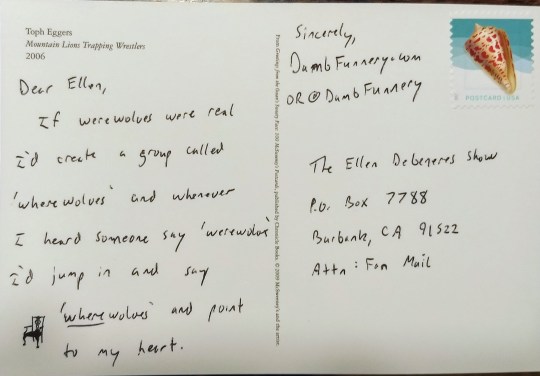 Toph Eggers
Mountain Lions Trapping Wrestlers
2006
Dear Ellen,
If werewolves were real
I'd create a group called
'wherewolves' and whenever
I heard someone say 'werewolves'
I'd jump in and say
'wherewolves' and point
to my heart.
From Greetings from the Ocean's Sweaty Face: 100 McSweeney's Postcards, published by Chronicle Books. © 2009 McSweeney's and the artists.
Sincerely,
DumbFunnery.com
OR @DumbFunnery
POSTCARD USA
The Ellen Degeneres Show
P.O. Box 7788
Burbank, CA 91522
Attn: Fan Mail